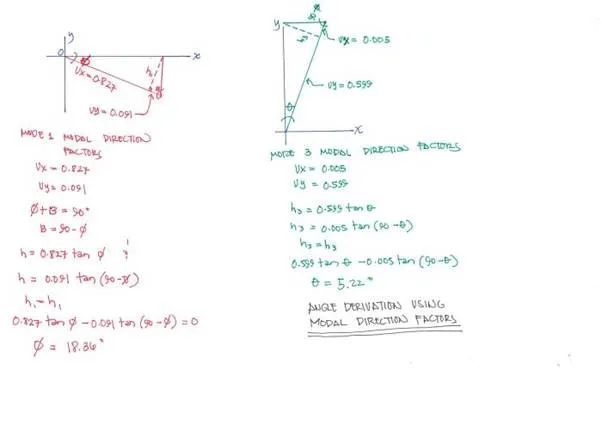 y
O
φ
x
h1
Ux=0.827
Uy=0.091
MODE 1 MODAL DIRECTION
FACTORS
Ux=0.827
Uy=0.091
φ+B=90°
B=90-φ
h=0.827 tan φ
h=0.091 tan (90-φ)
h1-h1
0.827 tan φ-0.091 tan (90-φ)=0
φ = 18.36°
y
Ux=0.005
Uy=0.599
θ
x
MODE 3 MODAL DIRECTION FACTORS
Ux=0.005
Uy=0.599
h3=0.599 tan θ
h3=0.005 tan (90-θ)
h3=h3
0.599 tan θ-0.005 tan (90-θ)
θ = 5.22°
ANGLE DERIVATION USING
MODAL DIRECTION FACTORS